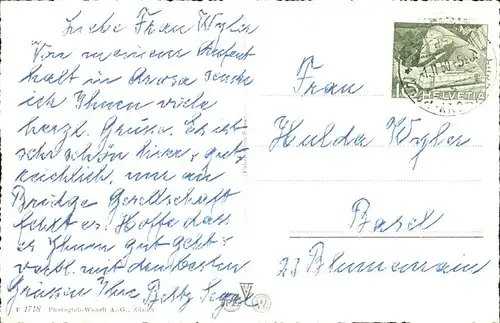 Liebe Frau Wyler
Von meinem Aufent
halt in Arosa sende
ich Ihnen viele
herzl. Grüsse. Es ist
sehr schön hier, gut
reichlich, nur an
Bridge Gesellschaft
fehlt es. Hoffe dass
es Ihnen gut geht
verbl. mit den besten
Grüssen Ihre Betty
V 1718 Photoglob-Wehrli A.-G., Zürich
HELVETIA
Frau
Hulda Wyler
Basel
23 Blumenrain